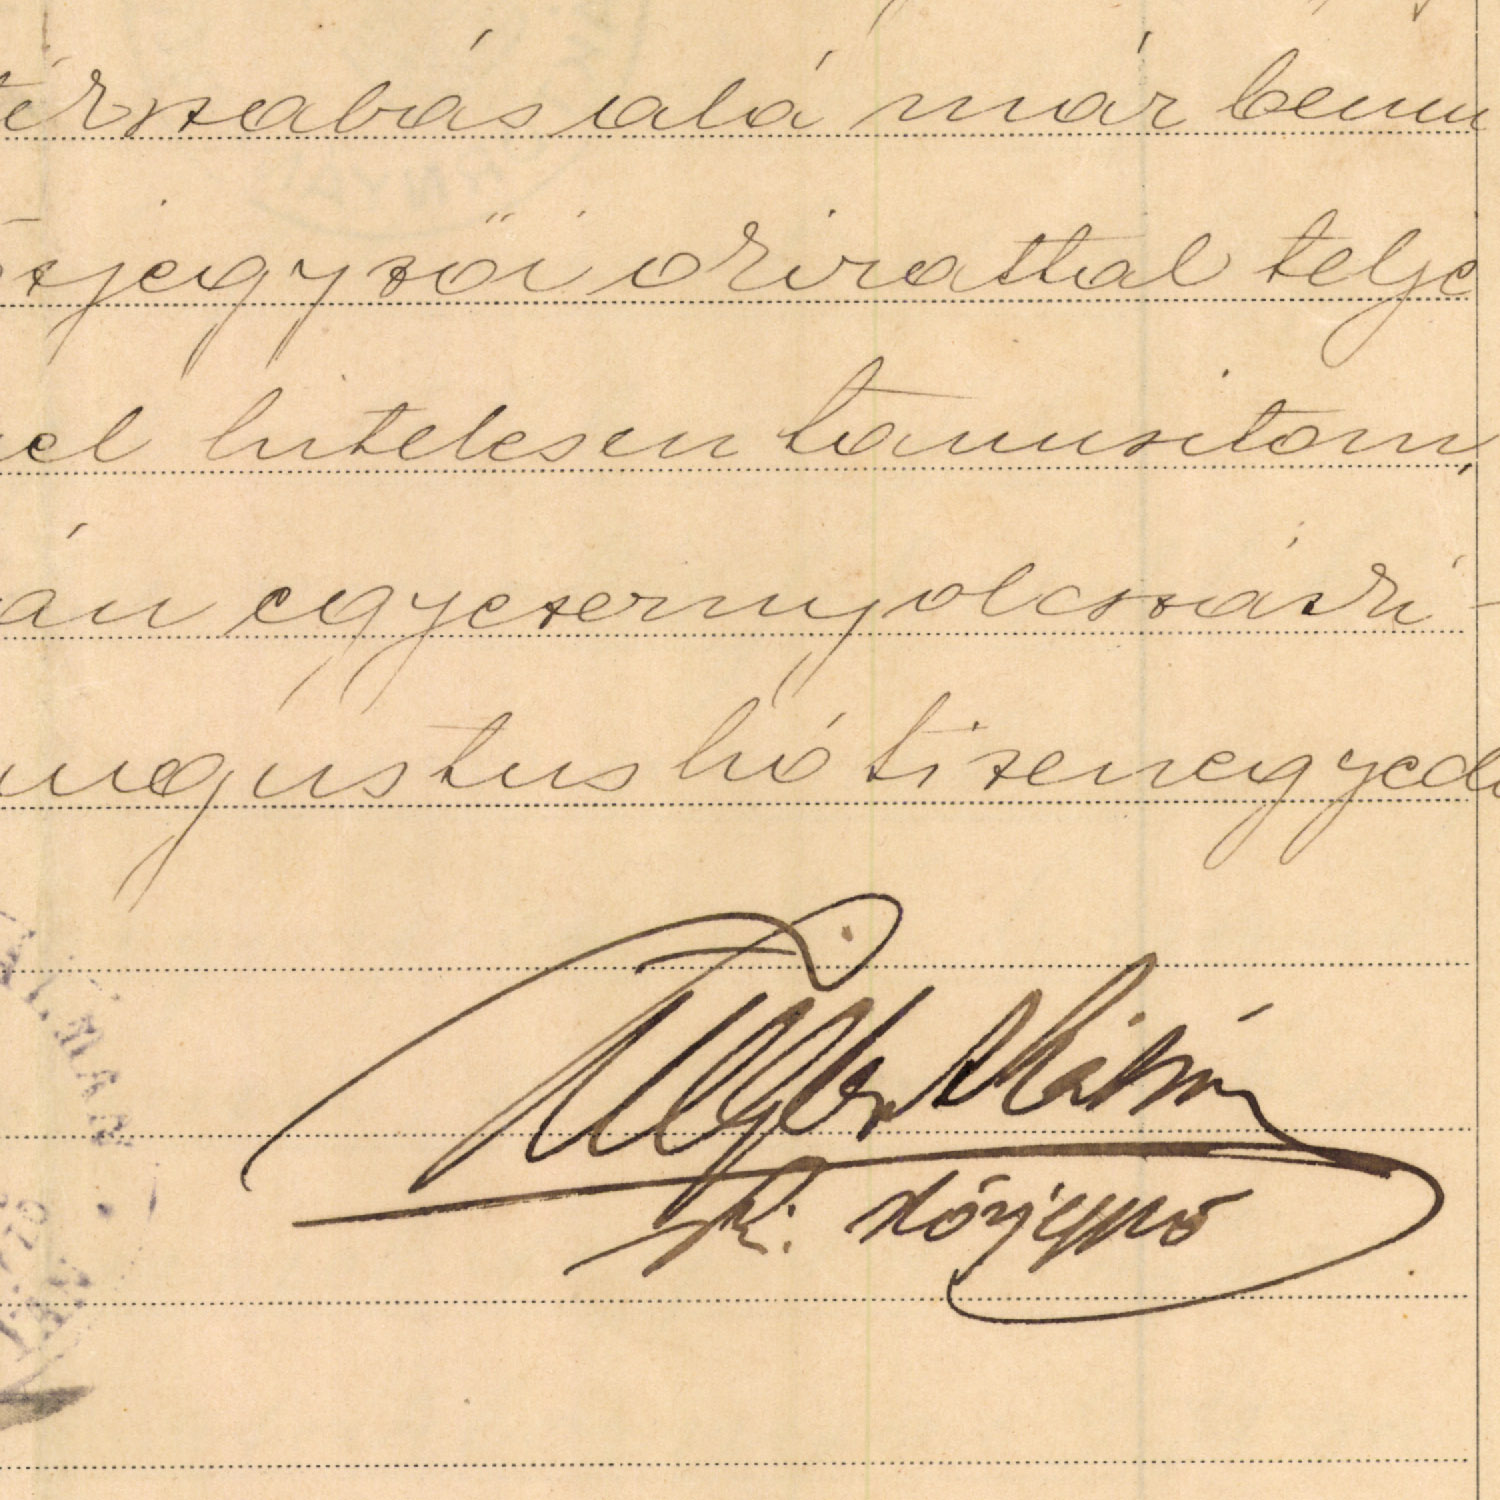 térszabás alá már benn
zjegyzői őrirattal telje
el hitelesen tanusitom,
án egyezernyolcszázki -
ugustus hó tizenegyedi
Kálmán
kir. közjegyző